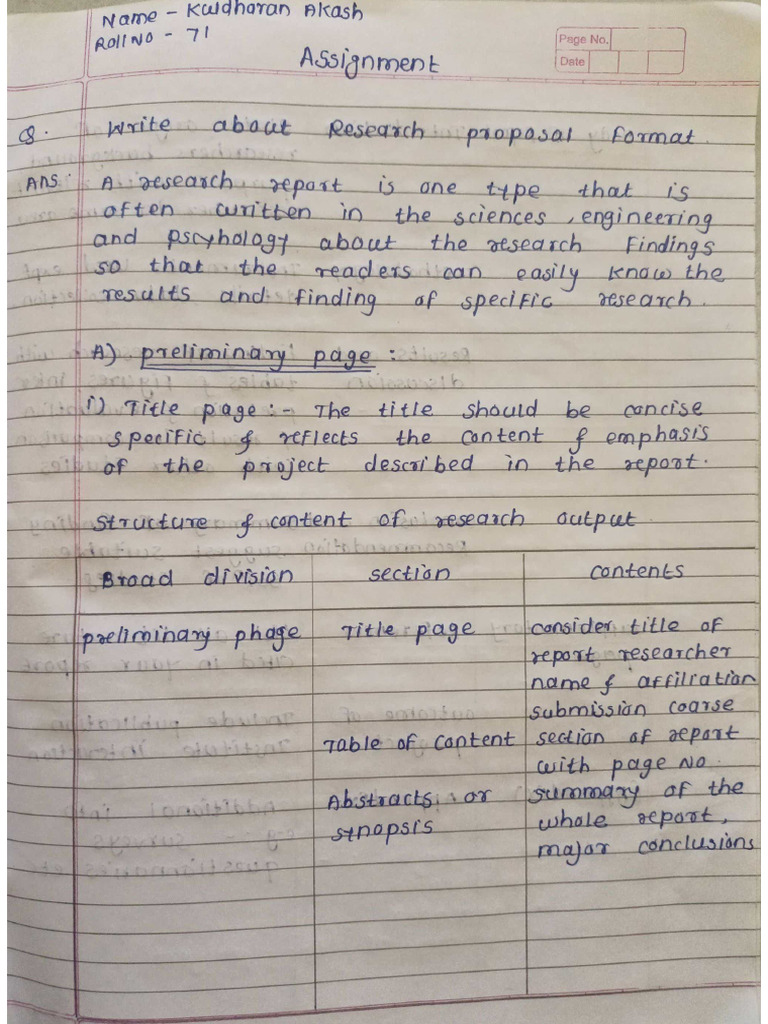 Name - Kuldharan Akash
Roll No - 71
Page No.
Date
Assignment
Q. Write about Research proposal format.
Ans. A research report is one type that is
often written in the sciences, engineering
and pscyhology about the research findings
so that the readers can easily know the
results and finding of specific research.
A) preliminary page :
i) Title page :- The title should be concise
specific & reflects the content & emphasis
of the project described in the report.
structure & content of research output
Broad division section contents
preliminary phage Title page consider title of
report researcher
name & affiliation
submission coarse
Table of content section of report
with page No.
Abstracts or summary of the
synopsis whole report,
major conclusions